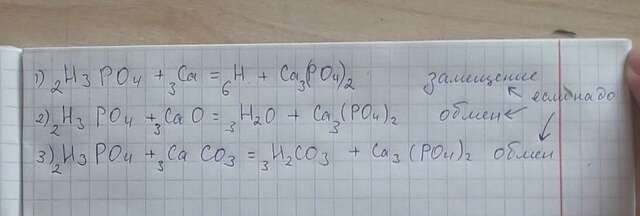 1) ₂H₃PO₄ + ₃Ca = ₆H + Ca₃(PO₄)₂ замещение
если надо
2) ₂H₃PO₄ + ₃CaO = ₃H₂O + Ca₃(PO₄)₂ обмен
3) ₂H₃PO₄ + ₃CaCO₃ = ₃H₂CO₃ + Ca₃(PO₄)₂ обмен